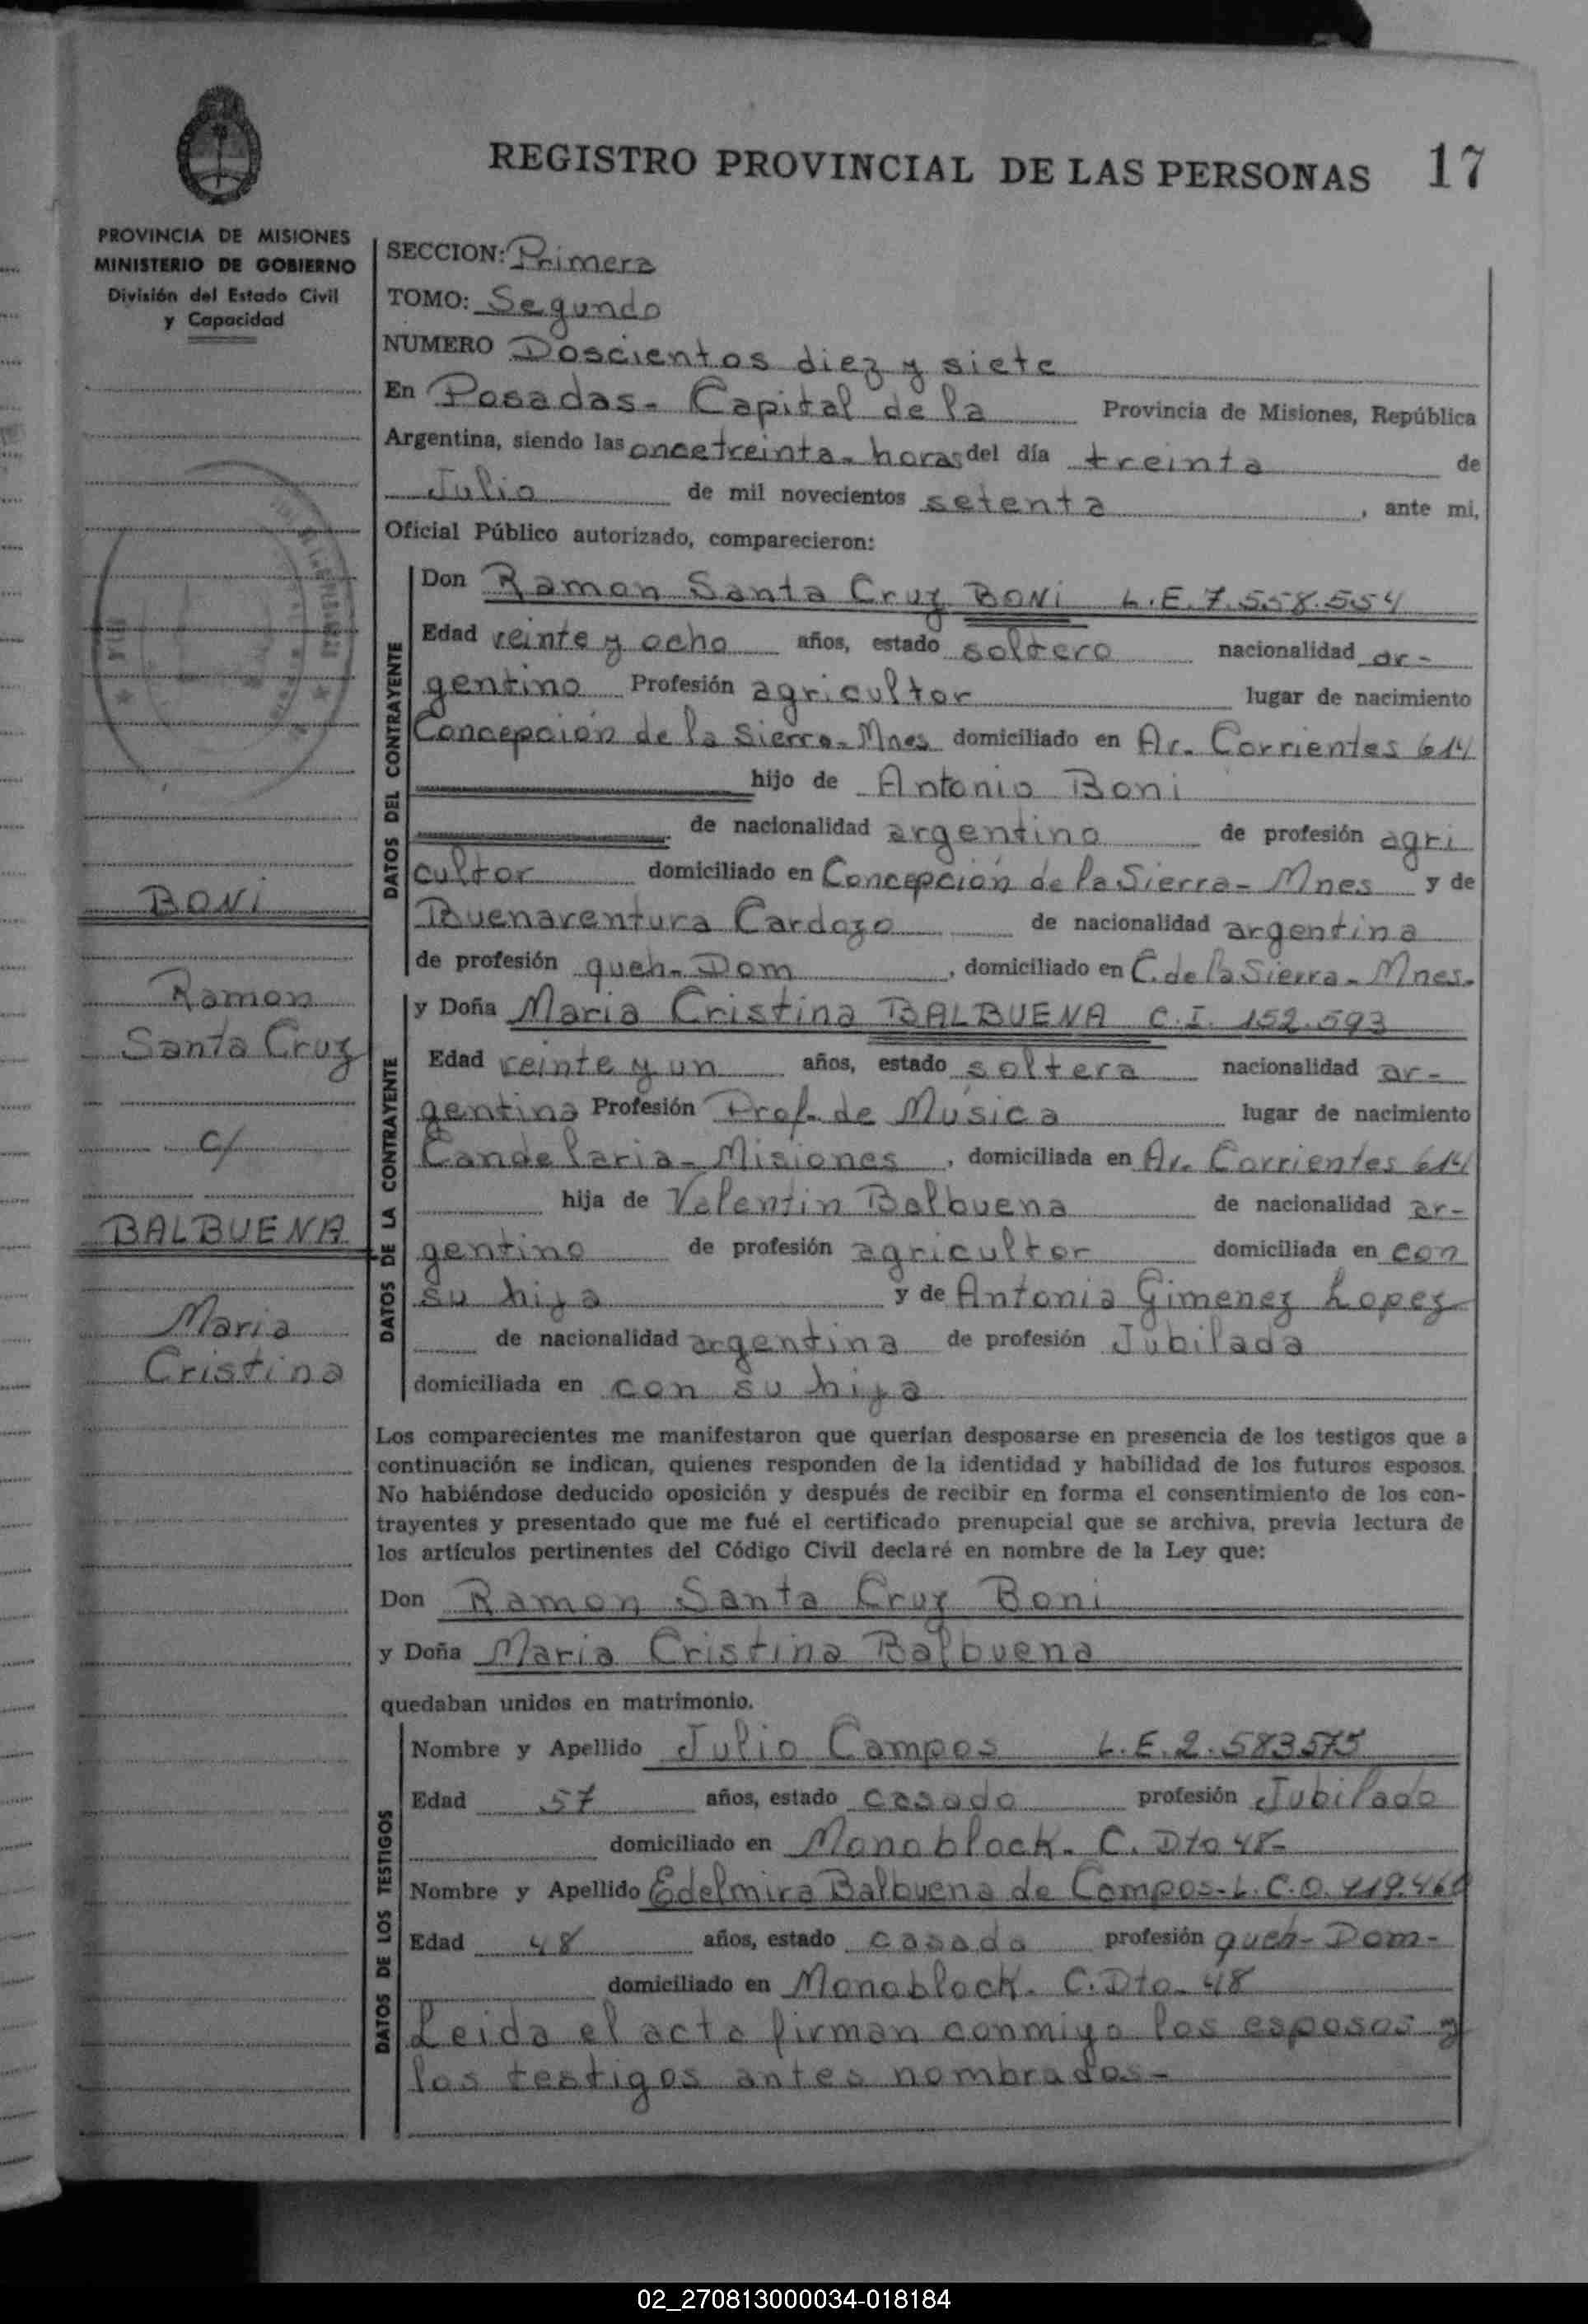 REGISTRO PROVINCIAL DE LAS PERSONAS 17
PROVINCIA DE MISIONES
MINISTERIO DE GOBIERNO
División del Estado Civil
y Capacidad
BONI
Ramon
Santa Cruz
c/
BALBUENA
Maria
Cristina
SECCION: Primera
TOMO: Segundo
NUMERO Doscientos diez y siete
En Posadas - Capital de la Provincia de Misiones, República
Argentina, siendo las once treinta - horas del día treinta de
Julio de mil novecientos setenta, ante mi,
Oficial Público autorizado, comparecieron:
DATOS DEL CONTRAYENTE
Don Ramon Santa Cruz BONI L.E. 7.558.554
Edad veinte y ocho años, estado soltero nacionalidad ar-
gentino Profesión agricultor lugar de nacimiento
Concepción de la Sierra - Mnes domiciliado en Av. Corrientes 614
hijo de Antonio Boni
de nacionalidad argentino de profesión agri
cultor domiciliado en Concepción de la Sierra - Mnes y de
Buenaventura Cardozo de nacionalidad argentina
de profesión queh - Dom, domiciliado en C. de la Sierra - Mnes.
DATOS DE LA CONTRAYENTE
y Doña Maria Cristina BALBUENA C.I. 152.593
Edad veinte y un años, estado soltera nacionalidad ar-
gentina Profesión Prof. de Música lugar de nacimiento
Candelaria - Misiones, domiciliada en Av. Corrientes 614
hija de Valentin Balbuena de nacionalidad ar-
gentino de profesión agricultor domiciliada en con
su hija y de Antonia Gimenez Lopez
de nacionalidad argentina de profesión Jubilada
domiciliada en con su hija
Los comparecientes me manifestaron que querían desposarse en presencia de los testigos que a
continuación se indican, quienes responden de la identidad y habilidad de los futuros esposos.
No habiéndose deducido oposición y después de recibir en forma el consentimiento de los con-
trayentes y presentado que me fué el certificado prenupcial que se archiva, previa lectura de
los artículos pertinentes del Código Civil declaré en nombre de la Ley que:
Don Ramon Santa Cruz Boni
y Doña Maria Cristina Balbuena
quedaban unidos en matrimonio.
DATOS DE LOS TESTIGOS
Nombre y Apellido Julio Campos L.E. 2.583575
Edad 57 años, estado casado profesión Jubilado
domiciliado en Monoblock - C. Dto 48 -
Nombre y Apellido Edelmira Balbuena de Campos - L.C.
Edad 48 años, estado casada profesión queh - Dom -
domiciliado en Monoblock - C. Dto - 48
Leida el acta firman conmigo los esposos y
los testigos antes nombrados -
02_270813000034-018184